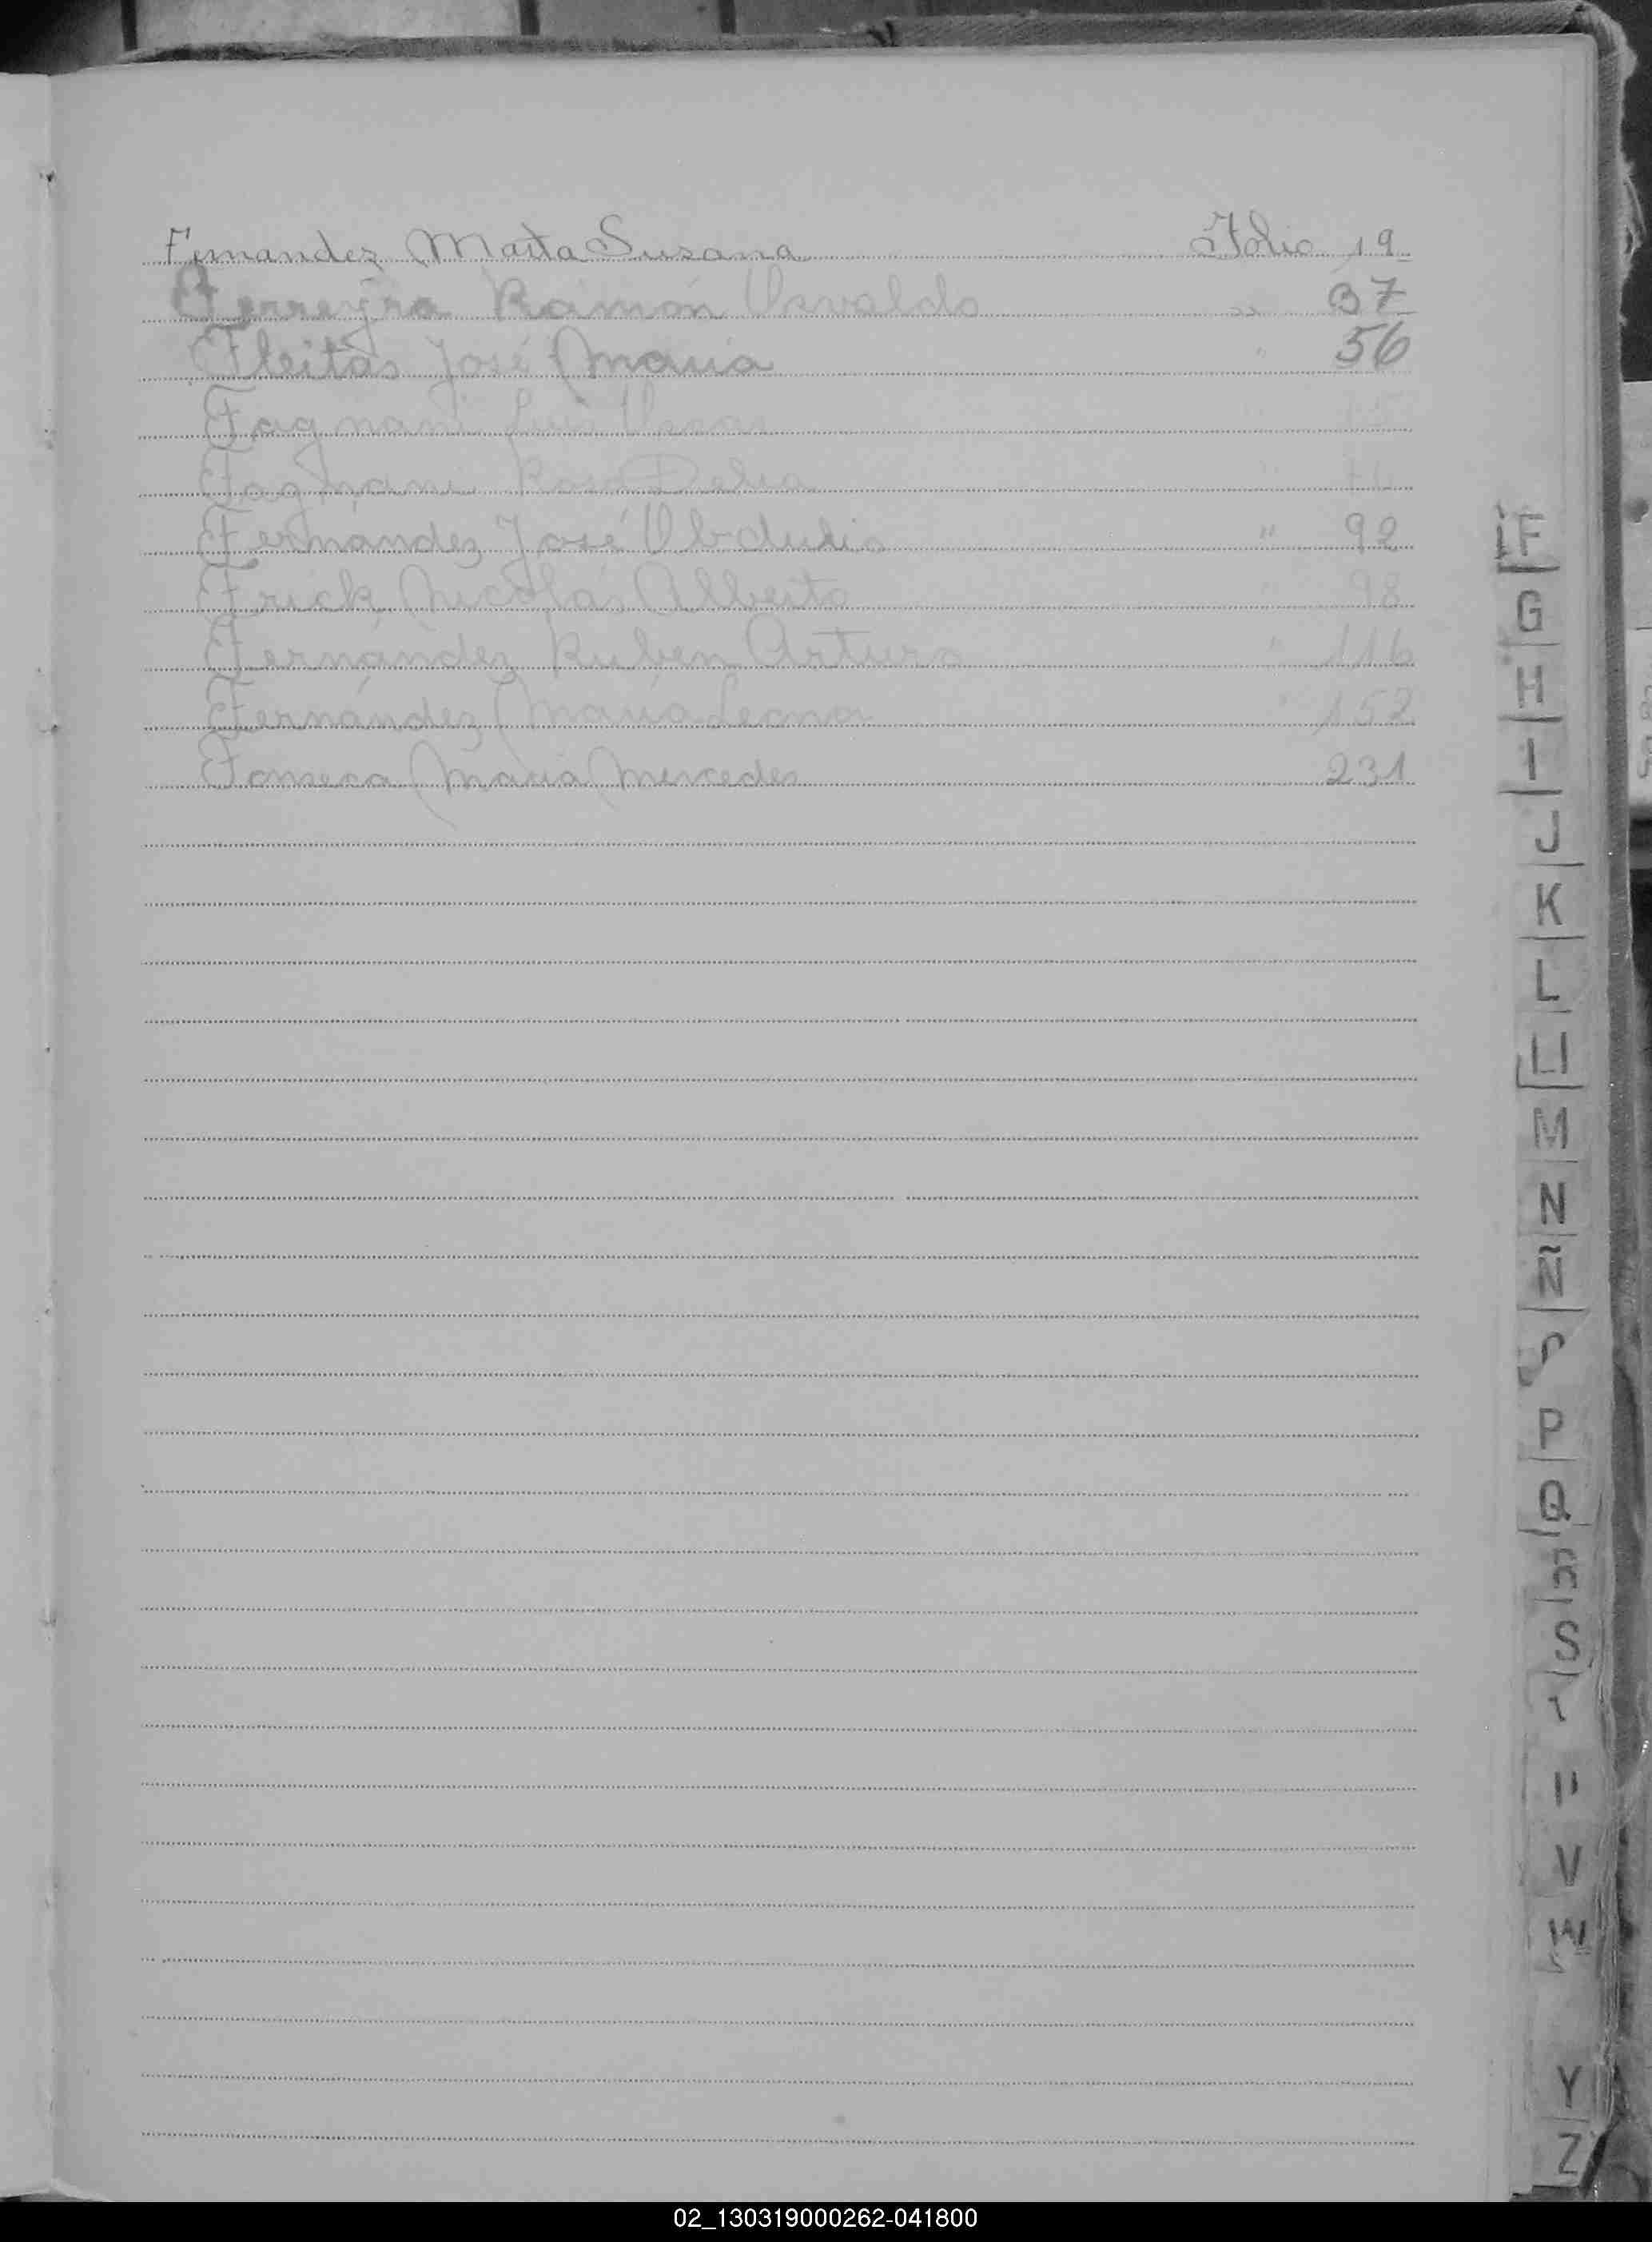 Fernandez Marta Susana Folio 19
Ferreyra Ramón Osvaldo " 37
Fleitas José María " 56
Fagnani Luis
Fagnani Rosa Delia
Fernández José Obdulio " 92
Frick Nicolás Alberto " 98
Fernández Ruben Arturo " 116
Fernández María Leonor " 152
Fonseca María Mercedes 231
F
G
H
I
J
K
L
Ll
M
N
Ñ
P
Q
R
S
V
W
Y
Z
02_130319000262-041800